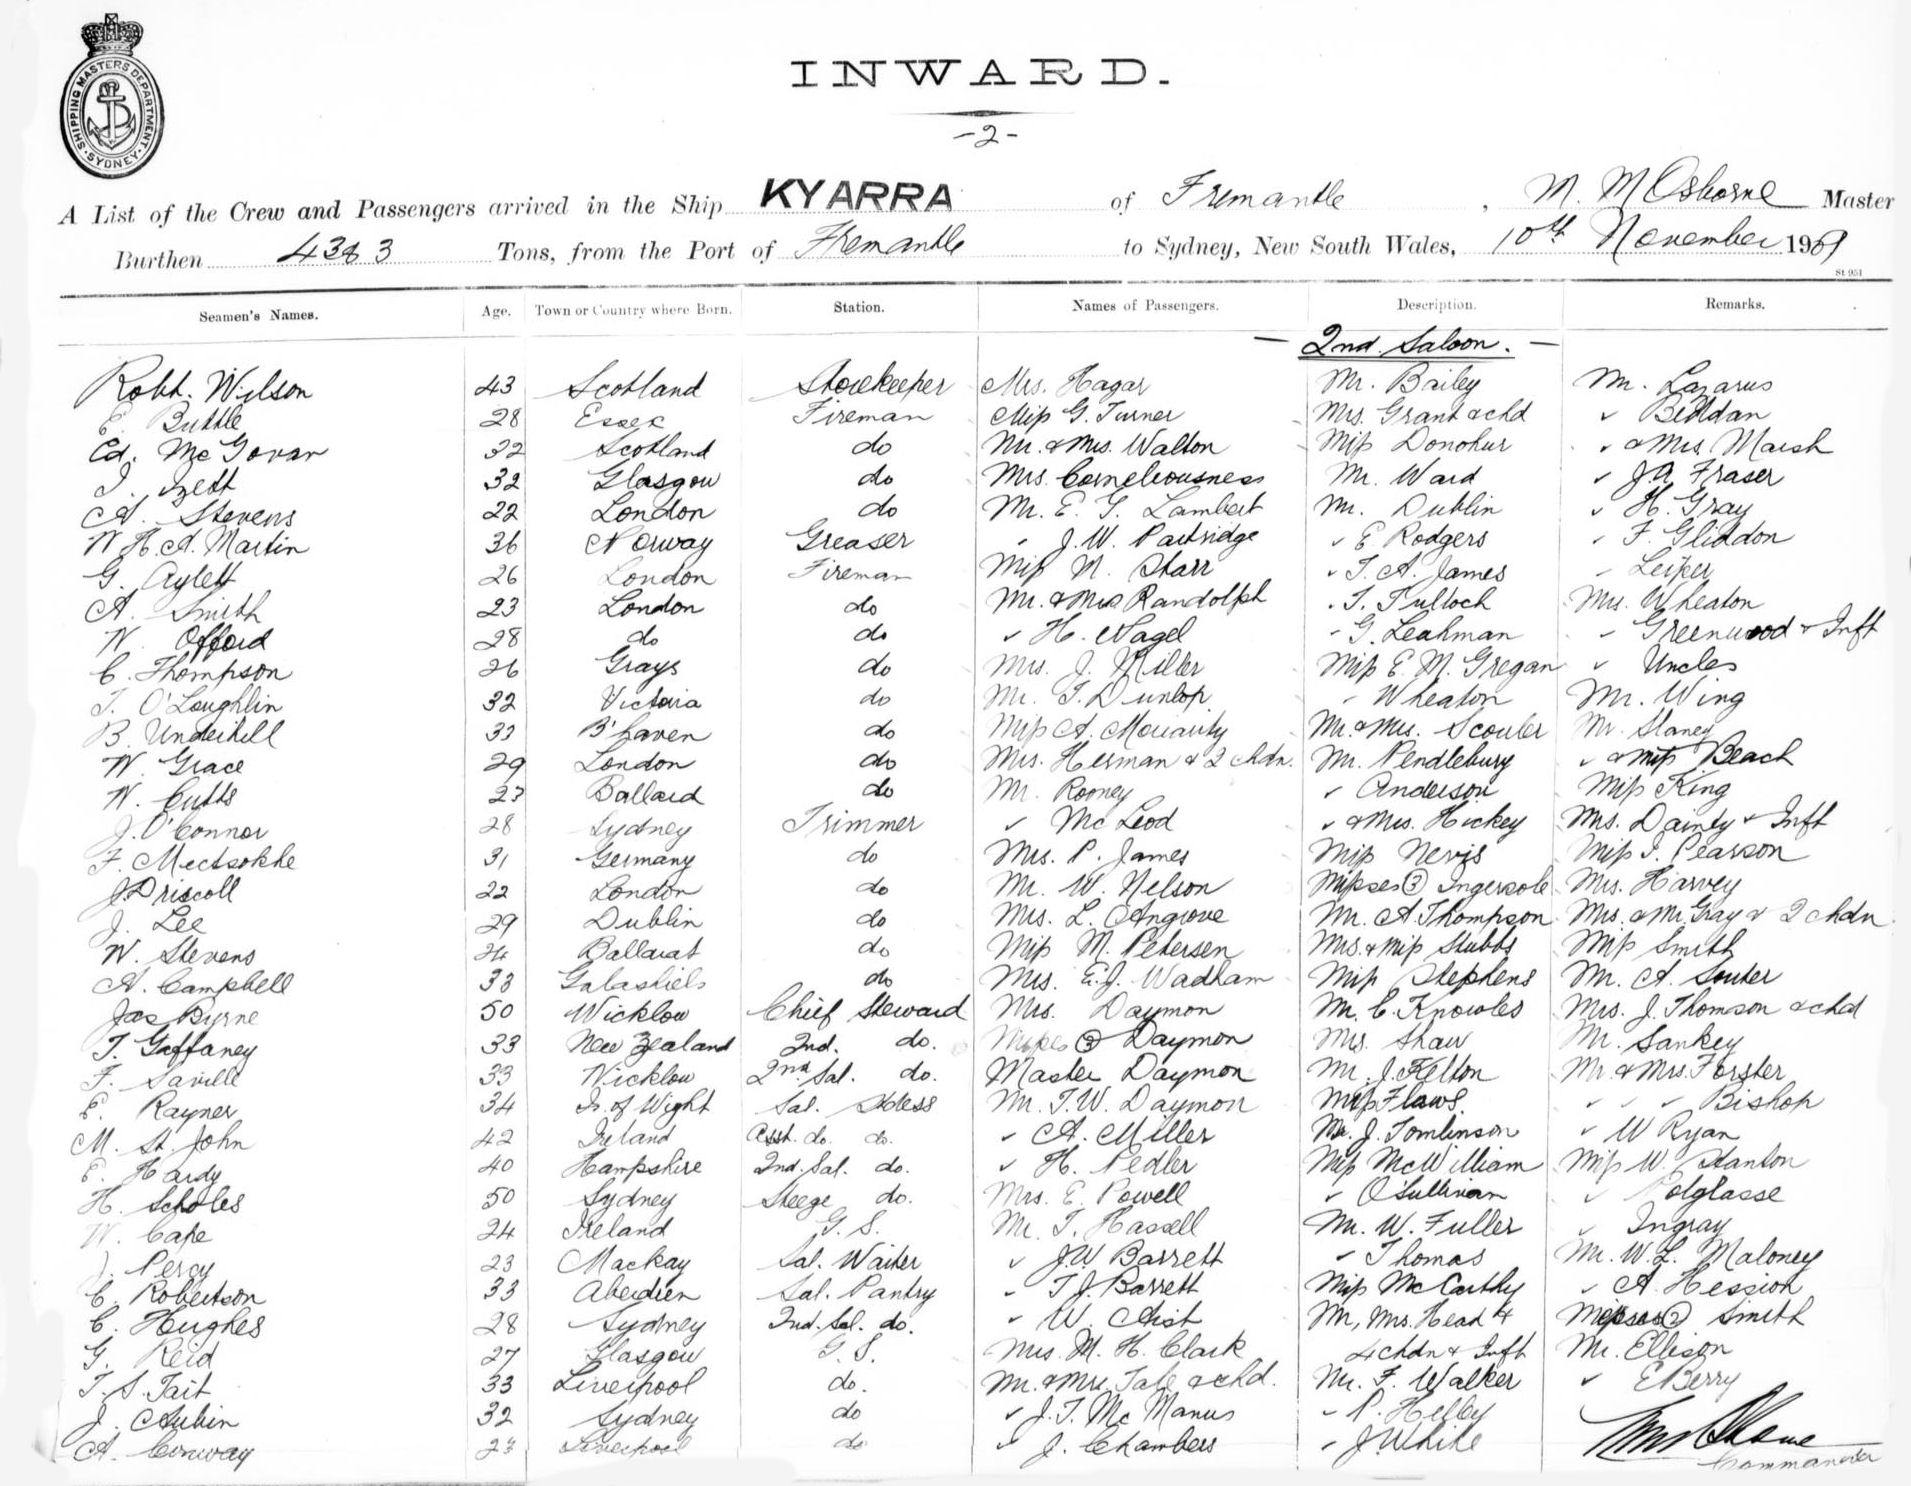 SHIPPING MASTERS DEPARTMENT. SYDNEY.
INWARD.
-2-
A List of the Crew and Passengers arrived in the Ship KYARRA of Fremantle, M. M Osborne Master
Burthen 4383 Tons, from the Port of Fremantle to Sydney, New South Wales, 10th November 1909
St 951
Seamen's Names. Age. Town or Country where Born. Station. Names of Passengers. Description. Remarks.
— 2nd Saloon. —
Robt. Wilson 43 Scotland Storekeeper Mrs. Hagar Mr. Bailey Mr. Lazarus
E. Buttle 28 Essex Fireman Miss G. Turner Mrs. Grant & chd ✓ Beddan
Ed. McGovan 32 Scotland do Mr. & Mrs. Walton Miss Donohur ✓ & Mrs. Marsh
32 Glasgow do Mrs. Corneliousness Mr. Ward ✓ J.A. Fraser
A. Stevens 22 London do Mr. E. G. Lambert Mr. Dublin ✓ H. Gray
W.H.A. Martin 36 Norway Greaser ✓ J.W. Partridge ✓ E Rodgers ✓ F. Gliddon
G. Aylett 26 London Fireman Miss M. Starr ✓ T. A. James ✓ Leiper
A. Smith 23 London do Mr. & Mrs Randolph ✓ T. Tulloch Mrs. Wheaton
W. Offord 28 do do ✓ H. Nagel ✓ G. Leahman ✓ Greenwood & Inft
C. Thompson 26 Grays do Mrs. J. Miller Miss E. M. Gregan ✓ Uncles
T. O'Loughlin 32 Victoria do Mr. T. Dunlop ✓ Wheaton Mr. Wing
B. Underhill 32 B'haven do Miss A. Moriarty Mr. & Mrs. Scouler Mr. Slaney
W. Grace 29 London do Mrs. Herman & 2 chdn. Mr. Pendlebury ✓ & Miss Beach
W. Cutts 23 Ballard do Mr. Rooney ✓ Anderson Miss King
J. O'Connor 28 Sydney Trimmer ✓ McLeod ✓ & Mrs. Hickey Mrs. Dainty & Inft
F. Mectsokhe 31 Germany do Mrs. P. James Miss Nevis Miss I. Pearson
J. Driscoll 22 London do Mr. W. Nelson Misses ③ Ingersole Mrs. Harvey
J. Lee 29 Dublin do Mrs. L. Angrove Mr. A. Thompson Mrs. & Mr Gray & 2 chdn
W. Stevens 24 Ballarat do Miss M. Petersen Mrs. & Miss Stubbs Miss Smith
A. Campbell 33 Galashiels do Mrs. E.J. Wadham Miss Stephens Mr. A. Souter
Jas Byrne 50 Wicklow Chief Steward Mrs. Daymon Mr. C. Knowles Mrs. J. Thomson & chd
T. Gaffaney 33 New Zealand 2nd. do. Misses ③ Daymon Mrs. Shaw Mr. Sankey
F. Saville 33 Wicklow 2nd Sal. do. Master Daymon Mr. J. Kelton Mr. & Mrs. Forster
E. Rayner 34 Is. of Wight Sal. Stdess Mr. T.W. Daymon Miss Flaws ✓ ✓ ✓ Bishop
M. St. John 42 Ireland Asst. do. do. ✓ A. Miller Mr. J. Tomlinson ✓ W Ryan
E. Hardy 40 Hampshire 2nd. Sal. do. ✓ H. Pedler Miss McWilliam Miss W. Stanton
H. Scholes 50 Sydney Steege do. Mrs. E. Powell ✓ O'Sullivan ✓ Polglasse
W. Cape 24 Ireland G.S. Mr. T. Hassell Mr. W. Fuller ✓ Ingray
J. Percy 23 Mackay Sal. Waiter ✓ J.W. Barrett ✓ Thomas Mr. W.L. Maloney
C. Robertson 33 Aberdeen Sal. Pantry ✓ T.J. Barrett Miss McCarthy ✓ A. Hession
C. Hughes 28 Sydney 2nd. Sal. do. ✓ W. Aist Mr, Mrs. Head & Misses ② Smith
G. Reid 27 Glasgow G.S. Mrs. M. H. Clark 4 chdn & Inft Mr. Ellison
T. S. Tait 33 Liverpool do. Mr. & Mrs. Tate & chd. Mr. F. Walker ✓ E Berry
J. Aubin 32 Sydney do ✓ J.T. McManus ✓ P. Helby
A. Conway 23 Liverpool do ✓ J. Chambers ✓ J. White
Commander